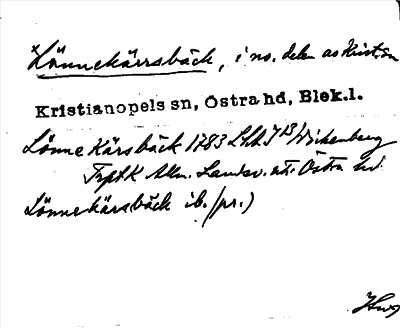 *Lönnekärrsbäck, i nö. delen av Krist. sn
Kristianopels sn, Östra hd, Blek.l.
Lönne Kärsbäck 1783 Lhd J Wickenberg
Allm. Landsv. Östra hd
Lönnekärsbäck ib. (pr.)